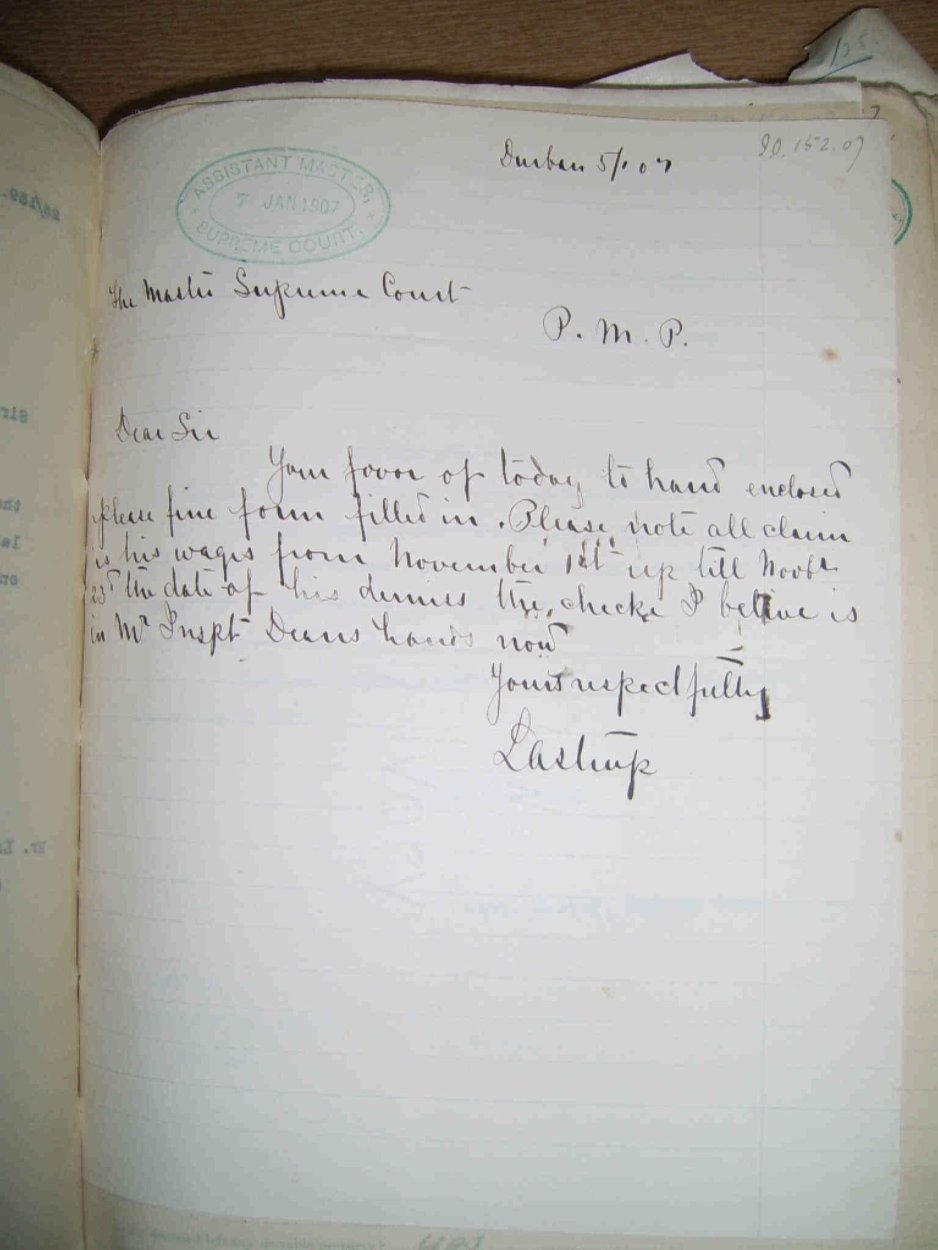 Durban 5/1 07
90.152.07
ASSISTANT MASTER,
7 JAN 1907
SUPREME COURT.
The Master Supreme Court
P. M. P.
Dear Sir
Your favor of today to hand enclosed
please fine form filled in. Please note all claim
is his wages from November 1st up till Novbr
23d the date of his demies the checke I belive is
in Mr Inspt Deans hands now
Yours respectfully
Lastrup